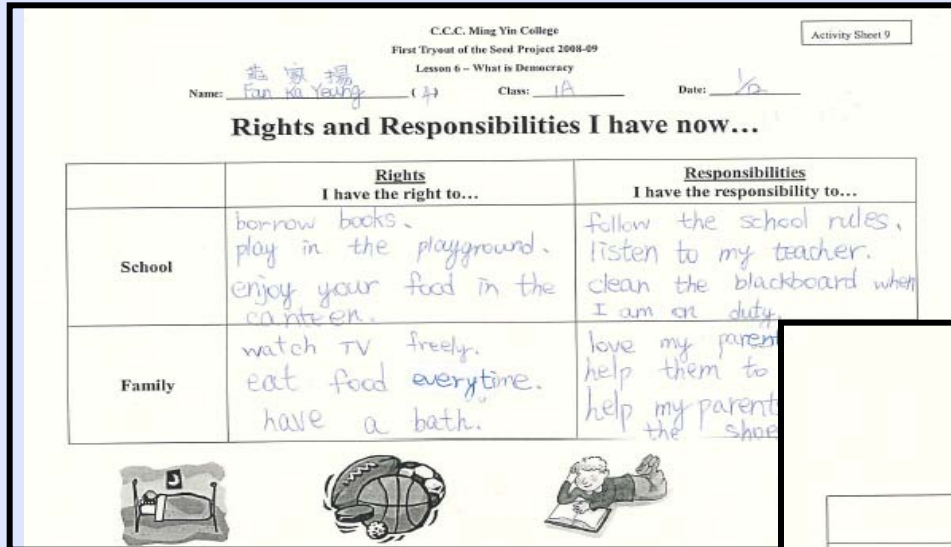 C.C.C. Ming Yin College
Activity Sheet 9
First Tryout of the Seed Project 2008-09
Lesson 6 – What is Democracy
家 揚
Name: Fan Ka Yeung ( ) Class: 1A Date: 1/12
Rights and Responsibilities I have now...
Rights
I have the right to...
Responsibilities
I have the responsibility to...
School
borrow books.
play in the playground.
enjoy your food in the
canteen.
follow the school rules.
listen to my teacher.
clean the blackboard when
I am on duty.
Family
watch TV freely.
eat food everytime.
have a bath.
love my parent
help them to
help my parent
the shoe